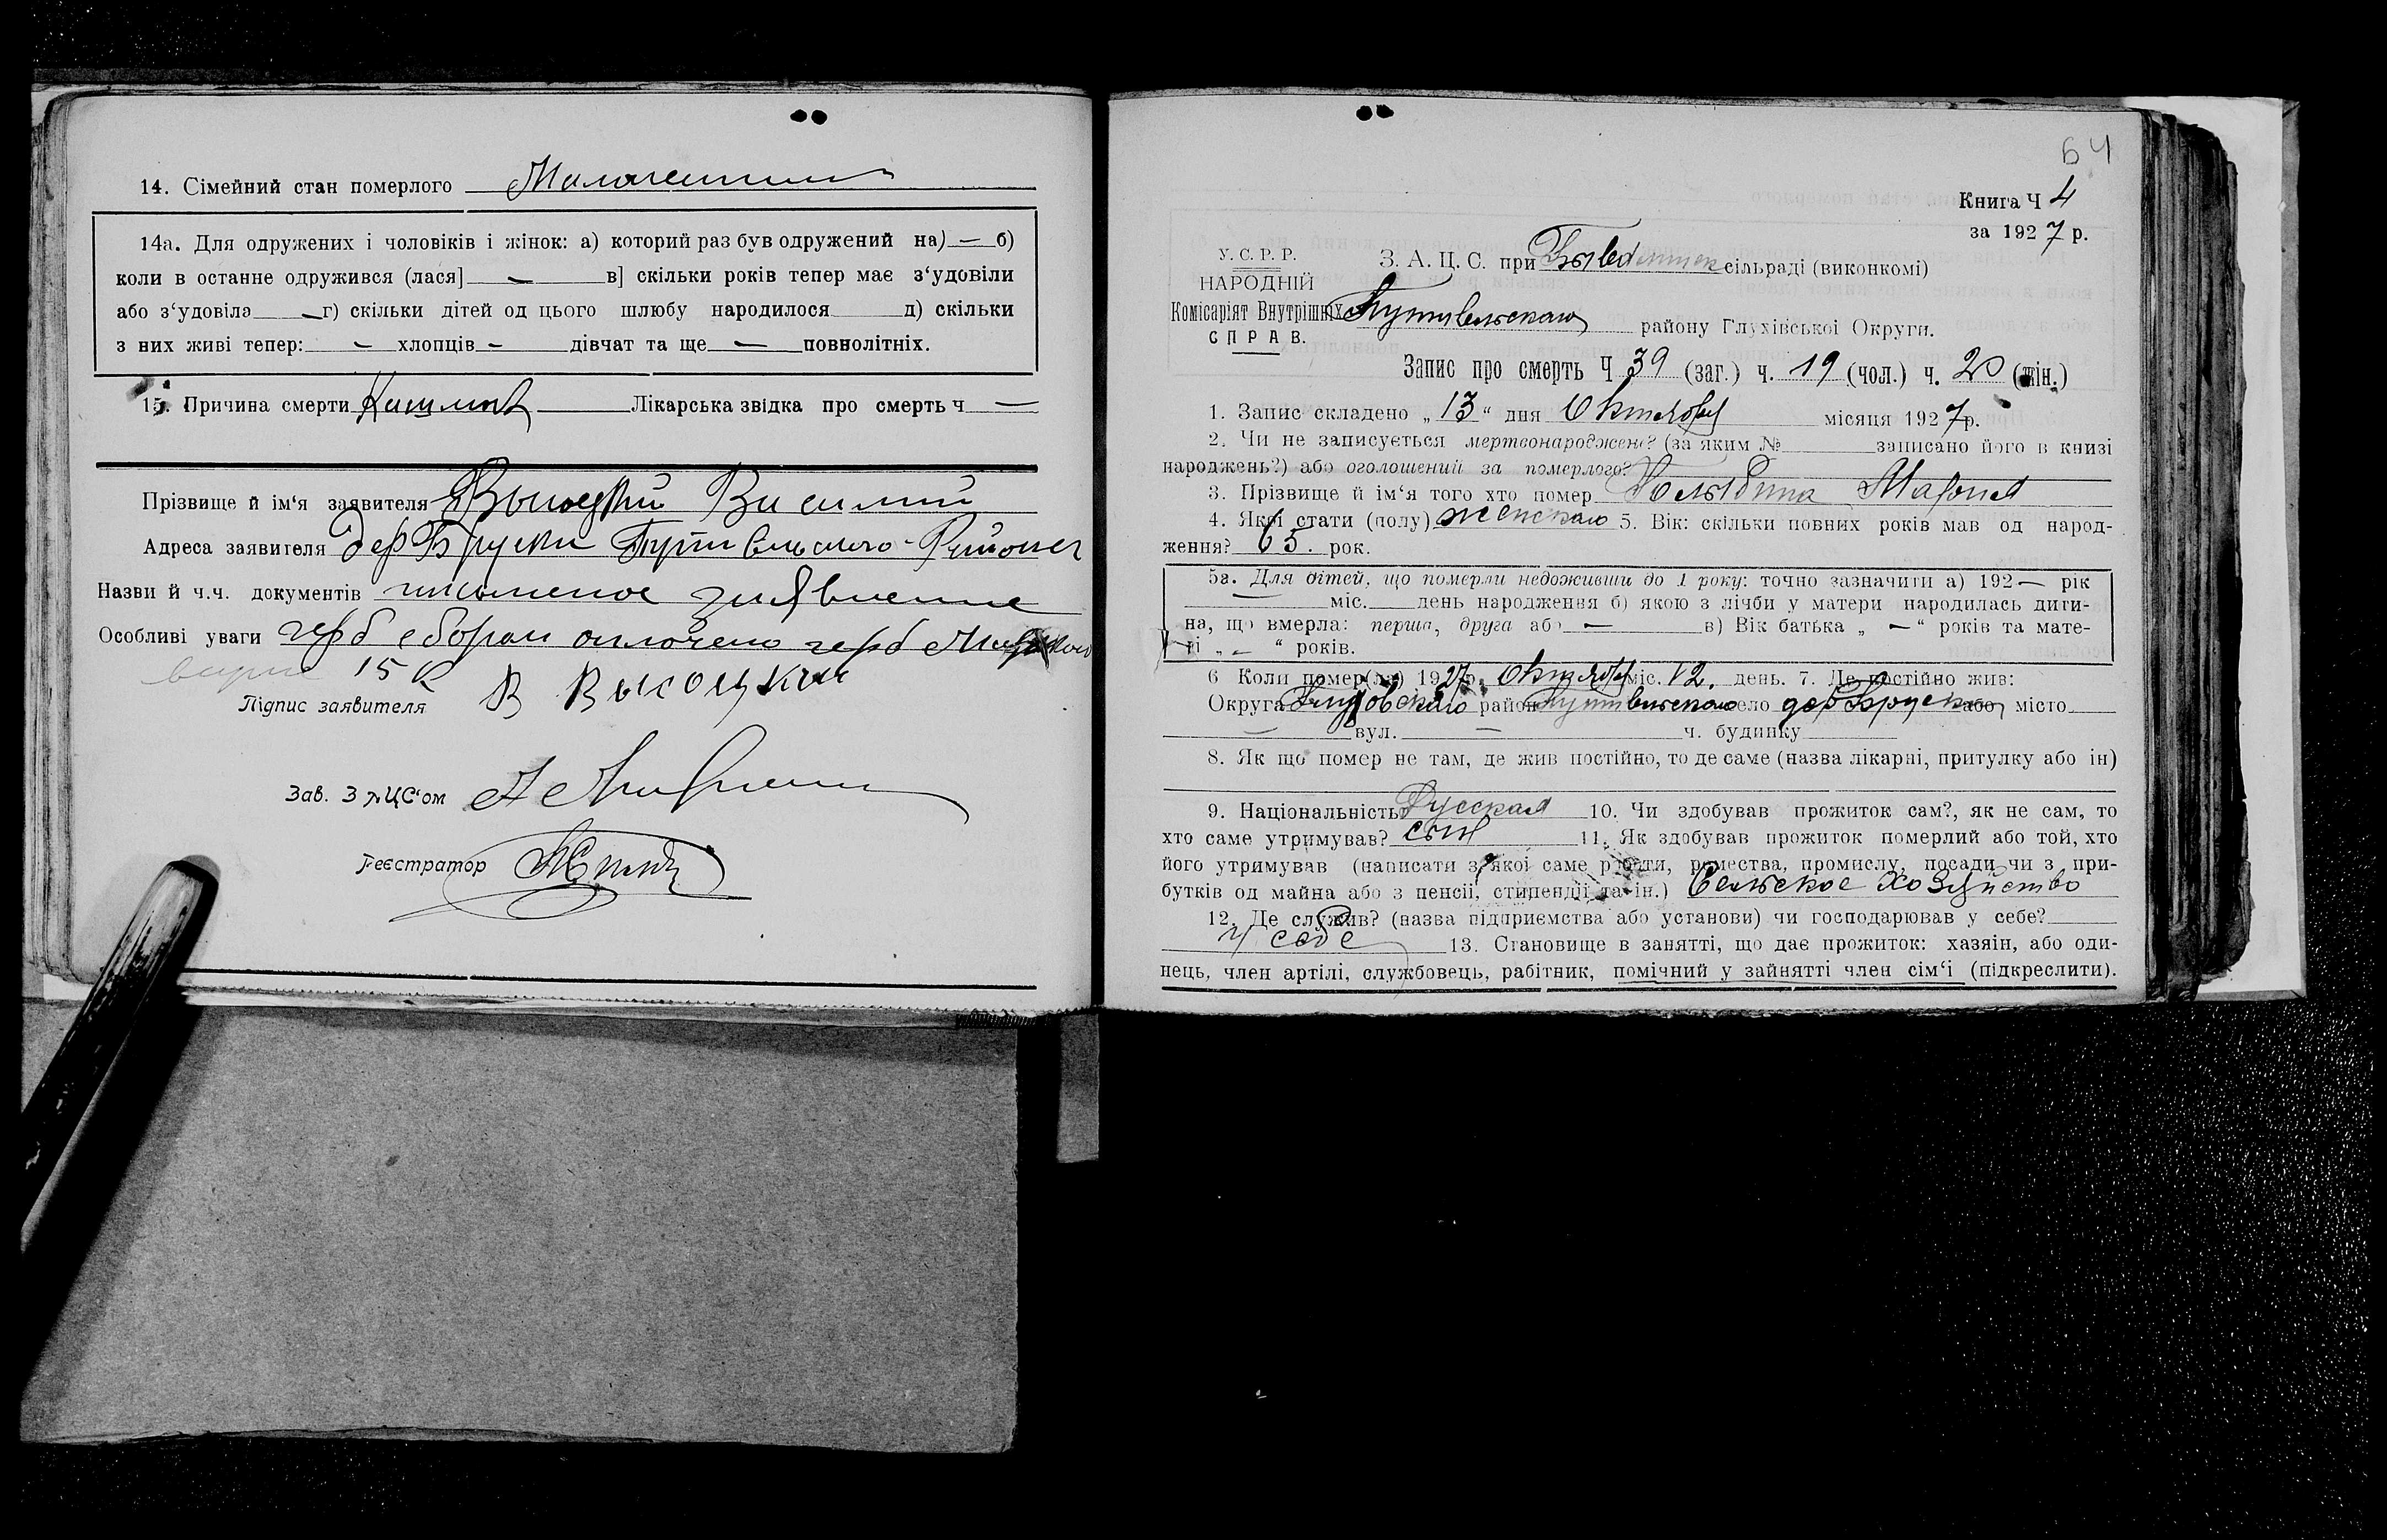 14. Сімейний стан померлого
14а. Для одружених і чоловіків і жінок: а) которий раз був одружений на) — б)
коли в останне одружився (лася] — в] скільки років тепер має з‘удовіли
або з‘удовіла — г) скільки дітей од цього шлюбу народилося д) скільки
з них живі тепер: — хлопців — дівчат та ще — повнолітніх.
15. Причина смерти Кашель Лікарська звідка про смерть ч —
Прізвище й ім‘я заявителя Высоцкий Василий
Адреса заявителя дер Бруски Путивльского Района
Назви й ч.ч. документів письменое заявление
Особливі уваги герб сбором оплочено герб маркой
15 к
Підпис заявителя В Высоцкий
Зав. ЗАЦС‘ом
Реєстратор
64
Книга Ч 4
за 1927 р.
У. С. Р. Р.
НАРОДНІЙ
Комісаріят Внутрішніх
СПРАВ.
З. А. Ц. С. при сільраді (виконкомі)
Путивльского району Глухівської Округи.
Запис про смерть Ч 39 (заг.) ч. 19 (чол.) ч. 20 (жін.)
1. Запис складено „13“ дня Октября місяця 1927р.
2. Чи не записується мертвонароджене? (за яким № записано його в книзі
народжень?) або оголошений за померлого?
3. Прізвище й ім‘я того хто помер
4. Якої стати (полу) женского 5. Вік: скільки повних років мав од народ-
ження? 65. рок.
5а. Для дітей, що померли недоживши до 1 року: точно зазначити а) 192— рік
— міс. день народження б) якою з лічби у матери народилась дити-
на, що вмерла: перша, друга або — в) Вік батька „ — “ років та мате-
рі „ — “ років.
6 Коли помер(ла) 1927р. Октября міс. 12. день. 7. Де постійно жив:
Округа Глуховского район Путивльского село дер Бруски або місто
— вул. — ч. будинку
8. Як що помер не там, де жив постійно, то де саме (назва лікарні, притулку або ін)
9. Національність Русская 10. Чи здобував прожиток сам?, як не сам, то
хто саме утримував? сын 11. Як здобував прожиток померлий або той, хто
його утримував (написати з якої саме роботи, ремества, промислу, посади чи з при-
бутків од майна або з пенсії, стипендії та ін.) Сельское хозяйство
12. Де служив? (назва підприємства або установи) чи господарював у себе?
у себе 13. Становище в занятті, що дає прожиток: хазяін, або оди-
нець, член артілі, службовець, рабітник, помічний у зайнятті член сім‘і (підкреслити).